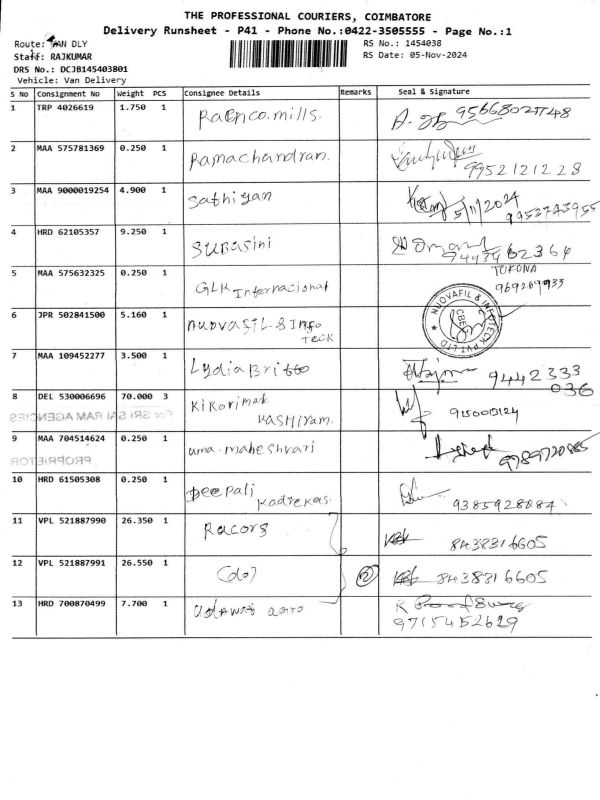 THE PROFESSIONAL COURIERS, COIMBATORE
Delivery Runsheet - P41 - Phone No.:0422-3505555 - Page No.:1
Route: VAN DLY
RS No.: 1454038
Staff: RAJKUMAR
RS Date: 05-Nov-2024
DRS No.: DCJB145403801
Vehicle: Van Delivery
S No Consignment No Weight PCS Consignee Details Remarks Seal & Signature
1 TRP 4026619 1.750 1 mills.
2 MAA 575781369 0.250 1 Ramachandran. 9952121228
3 MAA 9000019254 4.900 1 Sathiyan 5/11/2024
9952743955
4 HRD 62105357 9.250 1 SUBASINI
5 MAA 575632325 0.250 1 GLK Internacional
6 JPR 502841500 5.160 1 NUOVAFIL & INFOTECK PVT LTD CBE
7 MAA 109452277 3.500 1 Lydia Britto 9442333
036
8 DEL 530006696 70.000 3 Kirorimak
KASHIRAM.
For SRI SAI RAM AGENCIES
9 MAA 704514624 0.250 1 uma maheshvari 9789720885
PROPRIETOR
10 HRD 61505308 0.250 1 Deepali 9385928084
11 VPL 521887990 26.350 1 Racors 8438316605
12 VPL 521887991 26.550 1 (do) 2 8438316605
13 HRD 700870499 7.700 1
9715452629